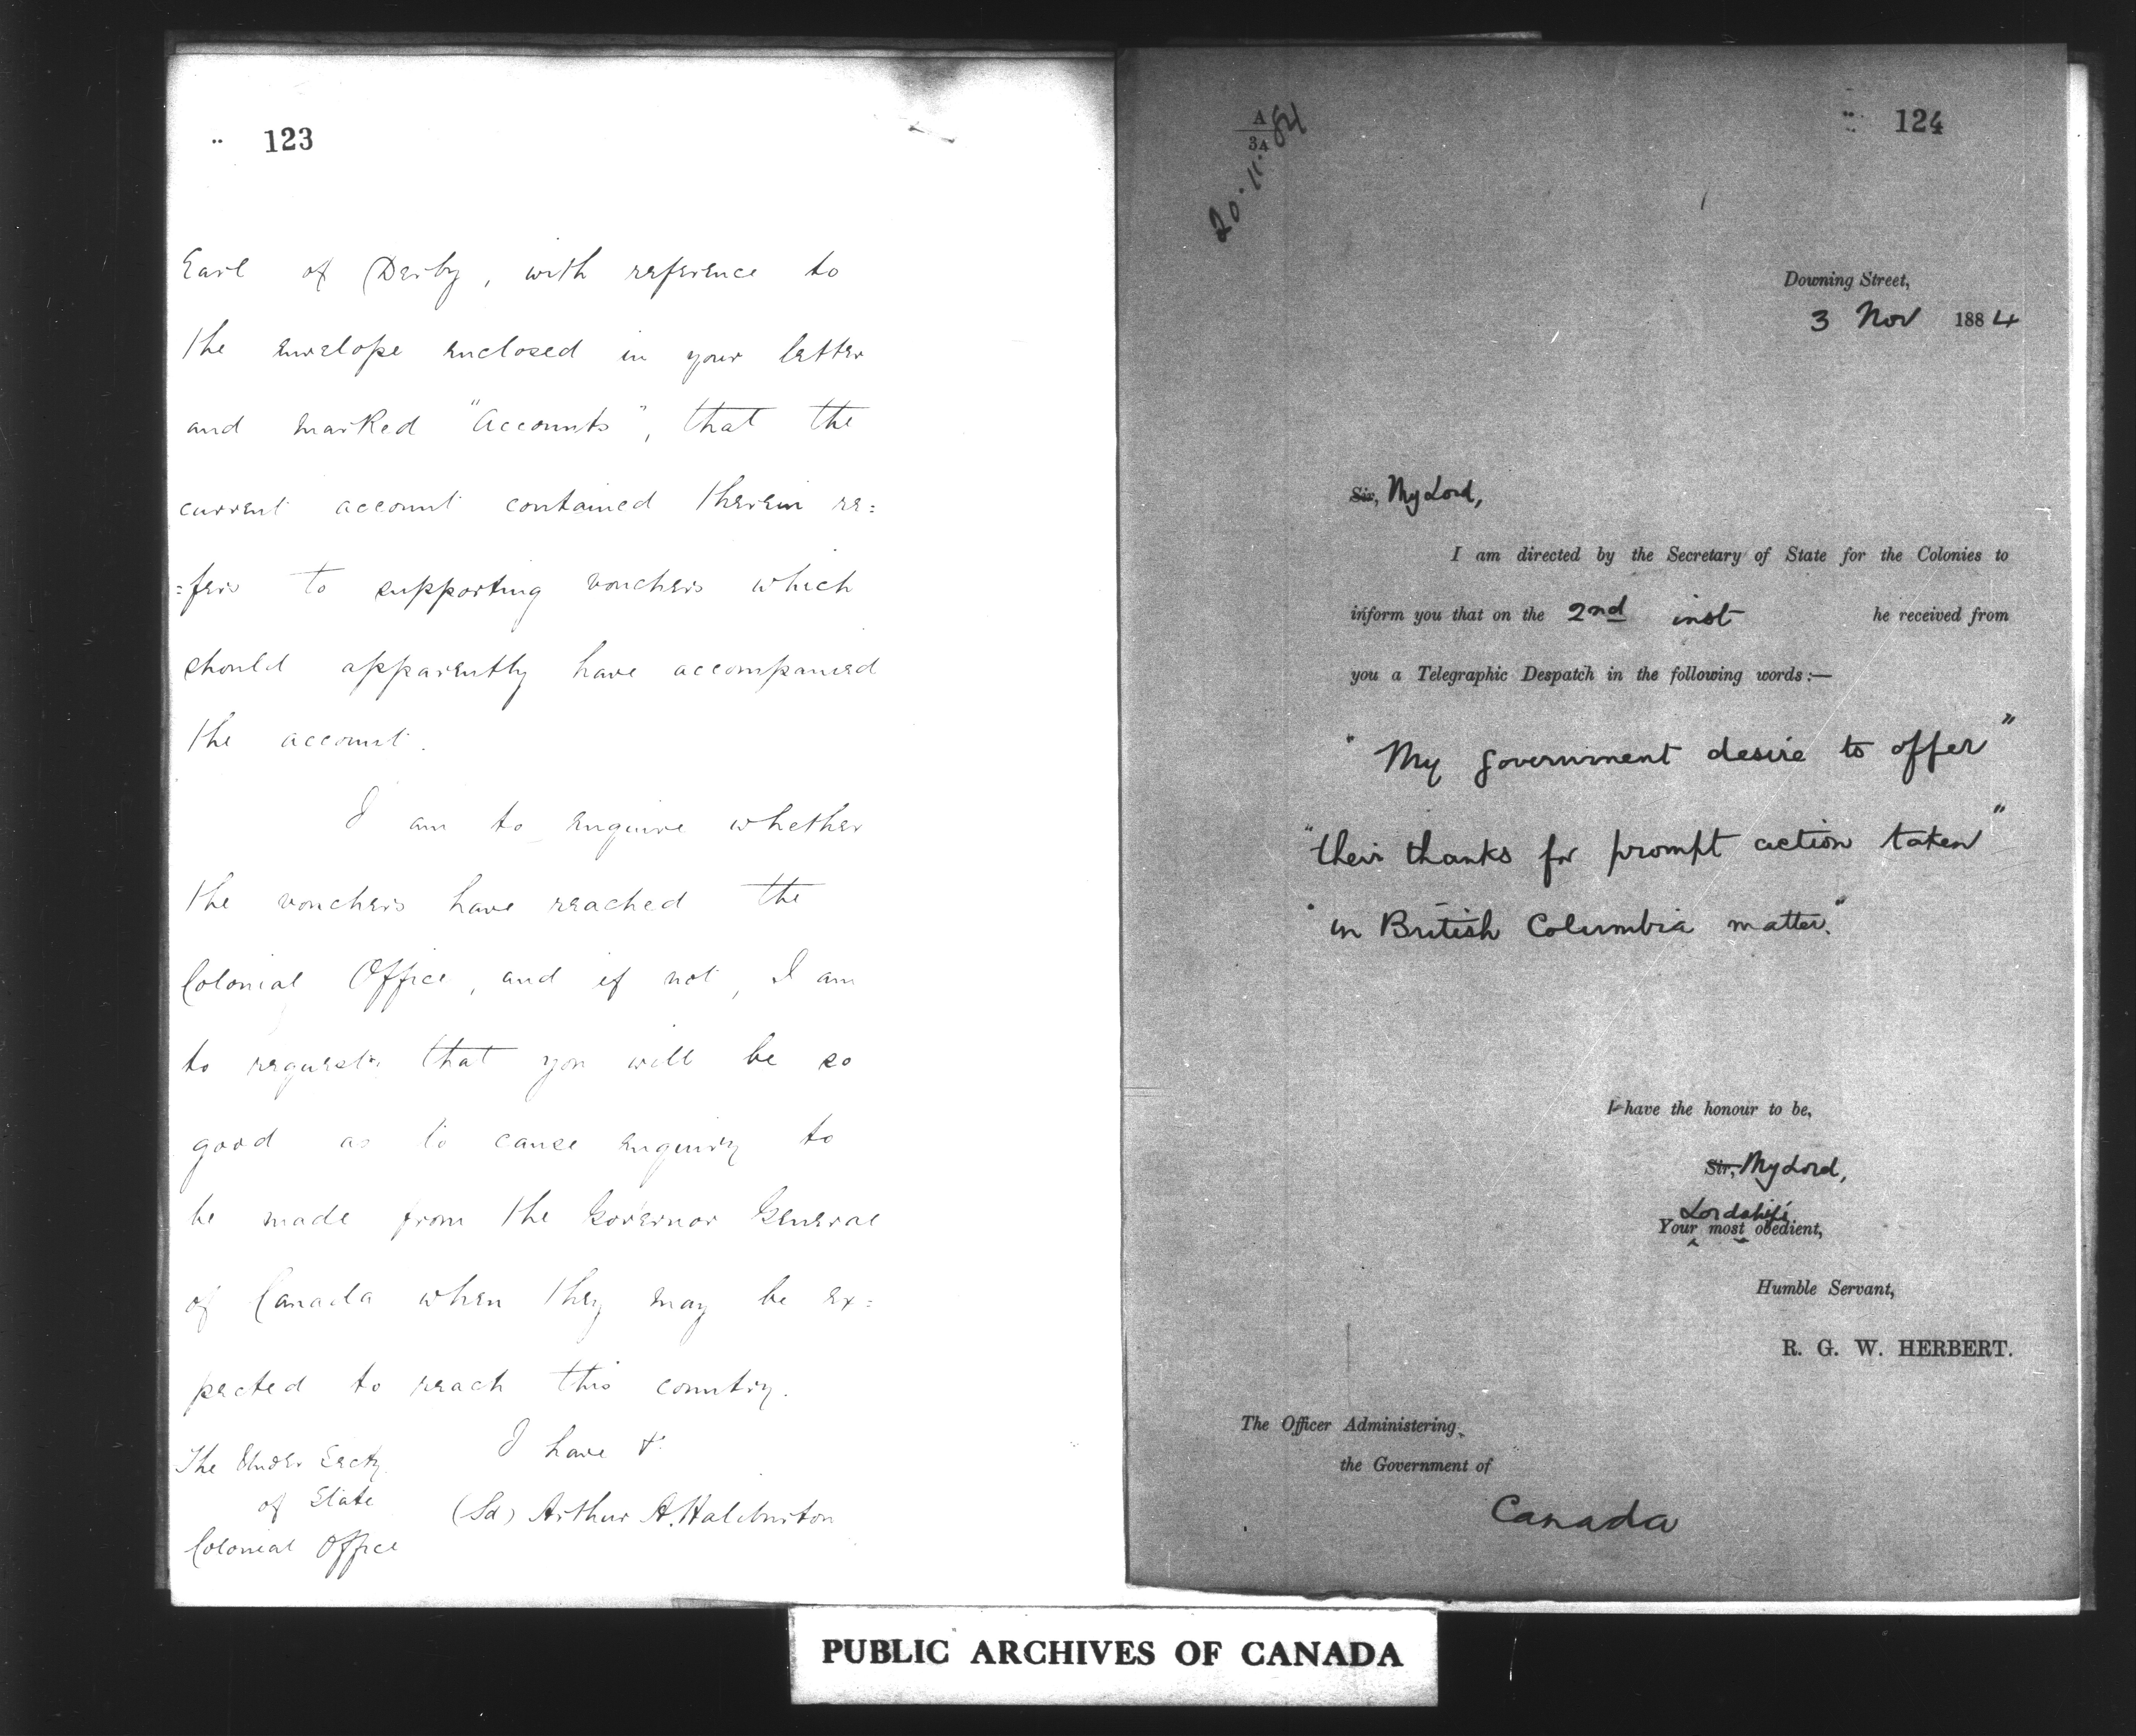 123
Earl of Derby, with reference to
the envelope enclosed in your letter
and marked "Accounts", that the
current account contained therein re=
=fers to supporting vouchers which
should apparently have accompanied
the account.
I am to enquire whether
the vouchers have reached the
Colonial Office, and if not, I am
to request that you will be so
good as to cause enquiry to
be made from the Governor General
of Canada when they may be ex=
pected to reach this country.
I have &
The Under Secty
of State
Colonial Office
(Sd) Arthur A. Haliburton
124
A
34
20.11.84
Downing Street,
3 Nov 1884
Sir, My Lord,
I am directed by the Secretary of State for the Colonies to
inform you that on the 2nd inst he received from
you a Telegraphic Despatch in the following words:—
"My government desire to offer"
"their thanks for prompt action taken"
"in British Columbia matter."
I have the honour to be,
Sir, My Lord,
Lordship's
Your most obedient,
Humble Servant,
R. G. W. HERBERT.
The Officer Administering
the Government of
Canada
PUBLIC ARCHIVES OF CANADA